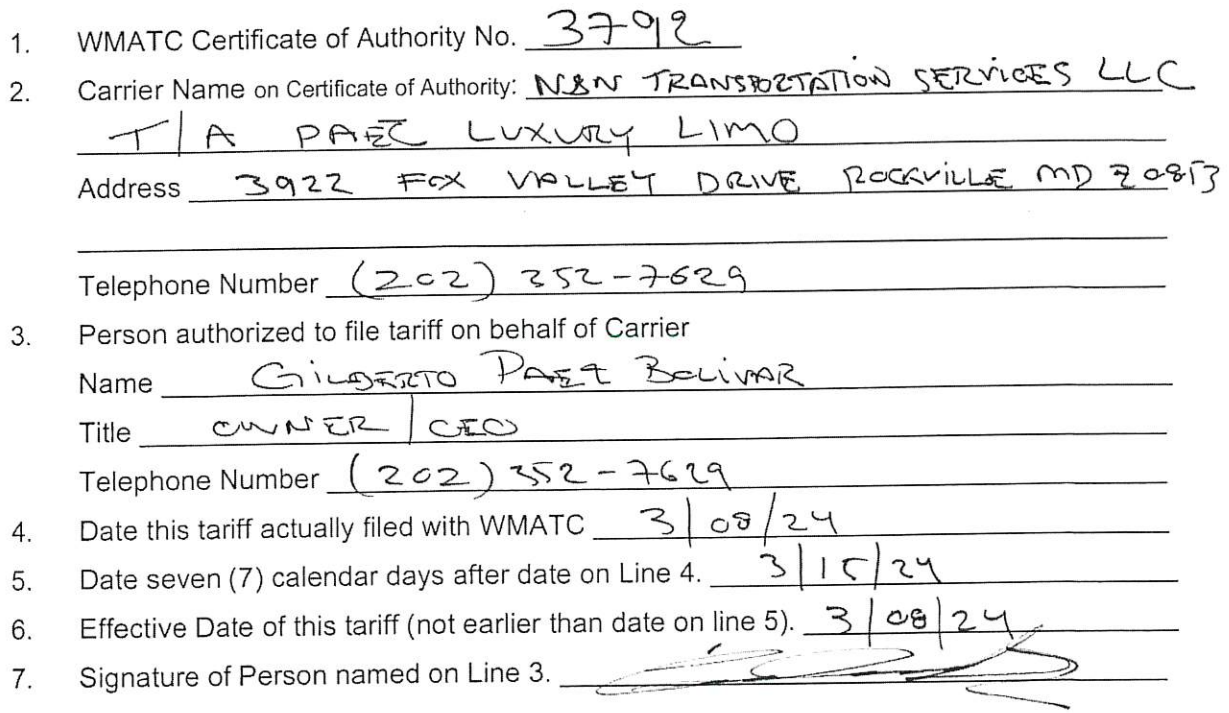 1. WMATC Certificate of Authority No. 3792
2. Carrier Name on Certificate of Authority: N&N TRANSPORTATION SERVICES LLC
T/A PAEZ LUXURY LIMO
Address 3922 FOX VALLEY DRIVE ROCKVILLE MD 20853
Telephone Number (202) 352-7629
3. Person authorized to file tariff on behalf of Carrier
Name GILBERTO PAEZ BOLIVAR
Title OWNER/CEO
Telephone Number (202) 352-7629
4. Date this tariff actually filed with WMATC 3/08/24
5. Date seven (7) calendar days after date on Line 4. 3/15/24
6. Effective Date of this tariff (not earlier than date on line 5). 3/08/24
7. Signature of Person named on Line 3.